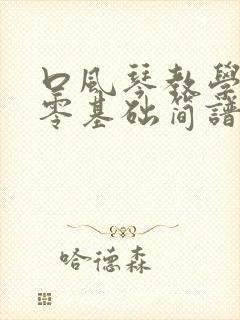 口風琴教學
零基础简譜
哈德森